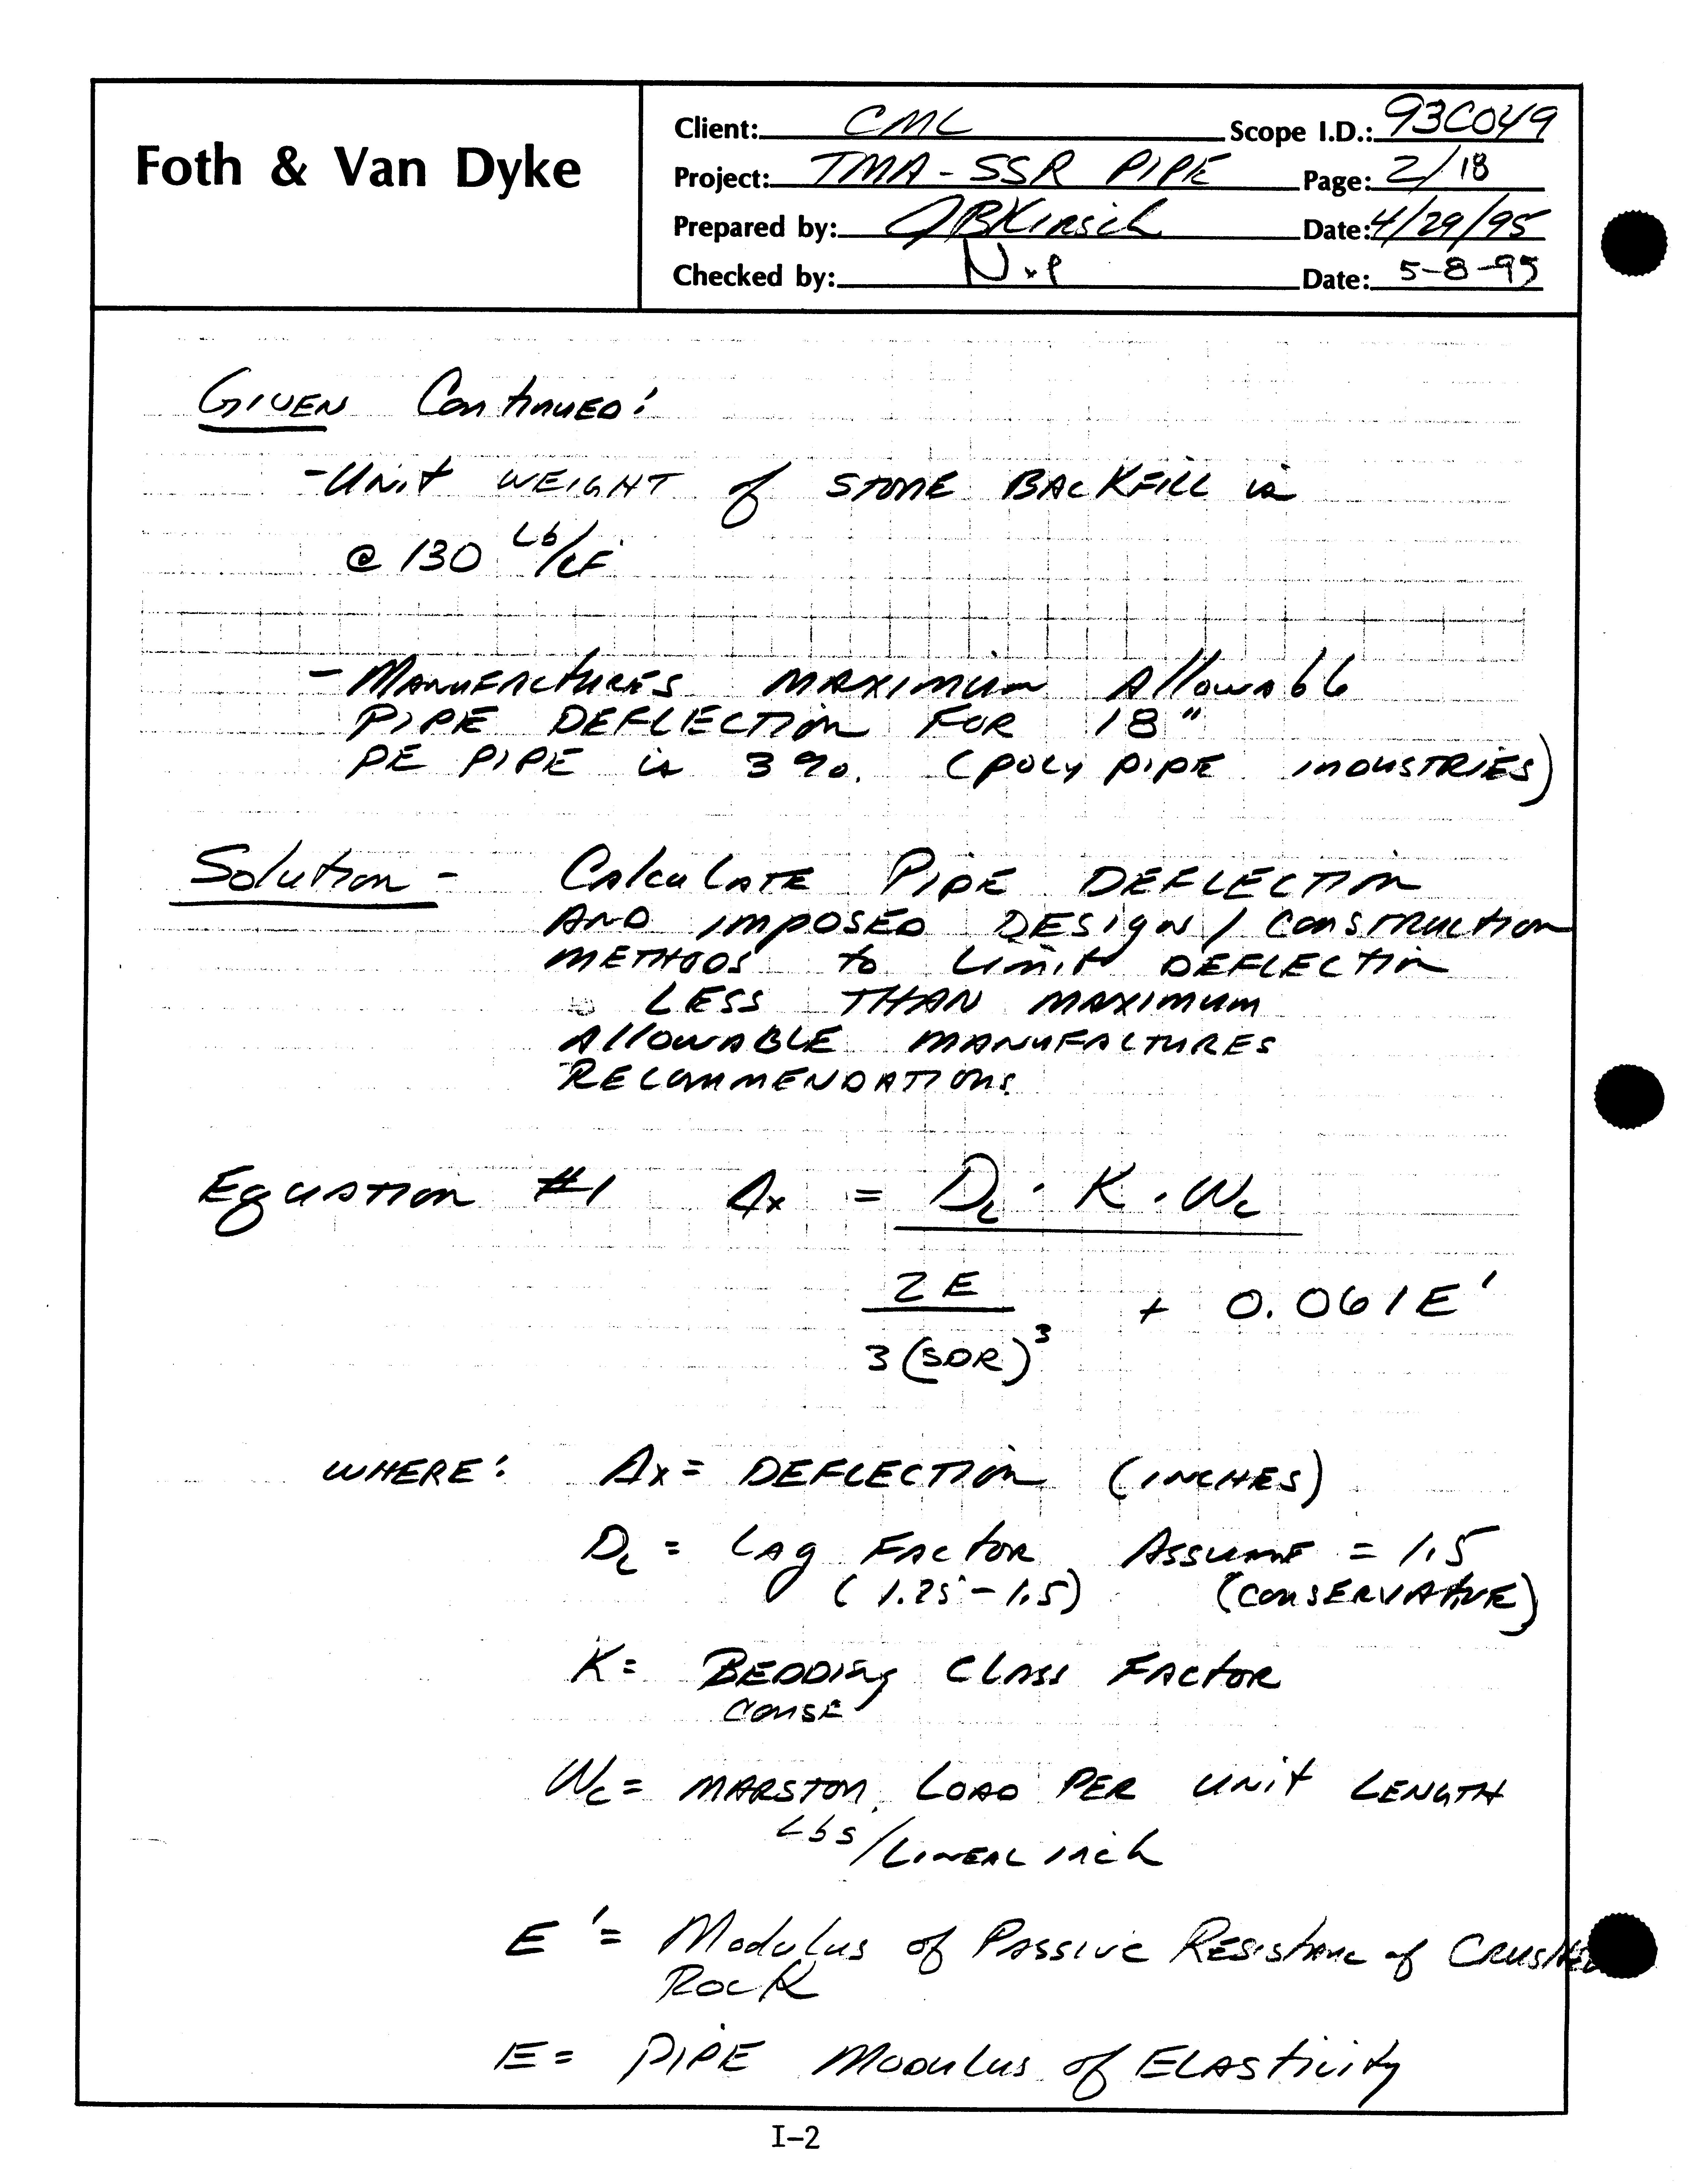 Foth & Van Dyke
Client: CMC Scope I.D.: 93C049
Project: TMA - SSR PIPE Page: 2/18
Prepared by: JBKirsch Date: 4/29/95
Checked by: Date: 5-8-95
GIVEN Continued:
- Unit WEIGHT of STONE BACKFILL is
@ 130 Lb/CF
- MANUFACTURES MAXIMUM Allowable
PIPE DEFLECTION FOR 18"
PE PIPE is 3%. (POLY PIPE INDUSTRIES)
Solution - CALCULATE PIPE DEFLECTION
AND IMPOSED DESIGN / CONSTRUCTION
METHODS to Limit DEFLECTION
LESS THAN MAXIMUM
ALLOWABLE MANUFACTURES
RECOMMENDATIONS
Equation #1 Δx = DL · K · Wc
2E + 0.061E'
3(SDR)³
WHERE: Δx = DEFLECTION (INCHES)
DL = LAG FACTOR ASSUME = 1.5
(1.25 - 1.5) (CONSERVATIVE)
K = BEDDING CLASS FACTOR
CONSE
Wc = MARSTON LOAD PER UNIT LENGTH
Lbs/LINEAL inch
E' = Modulus of PASSIVE RESISTANCE of CRUSHED
ROCK
E = PIPE MODULUS of ELASTICITY
I-2